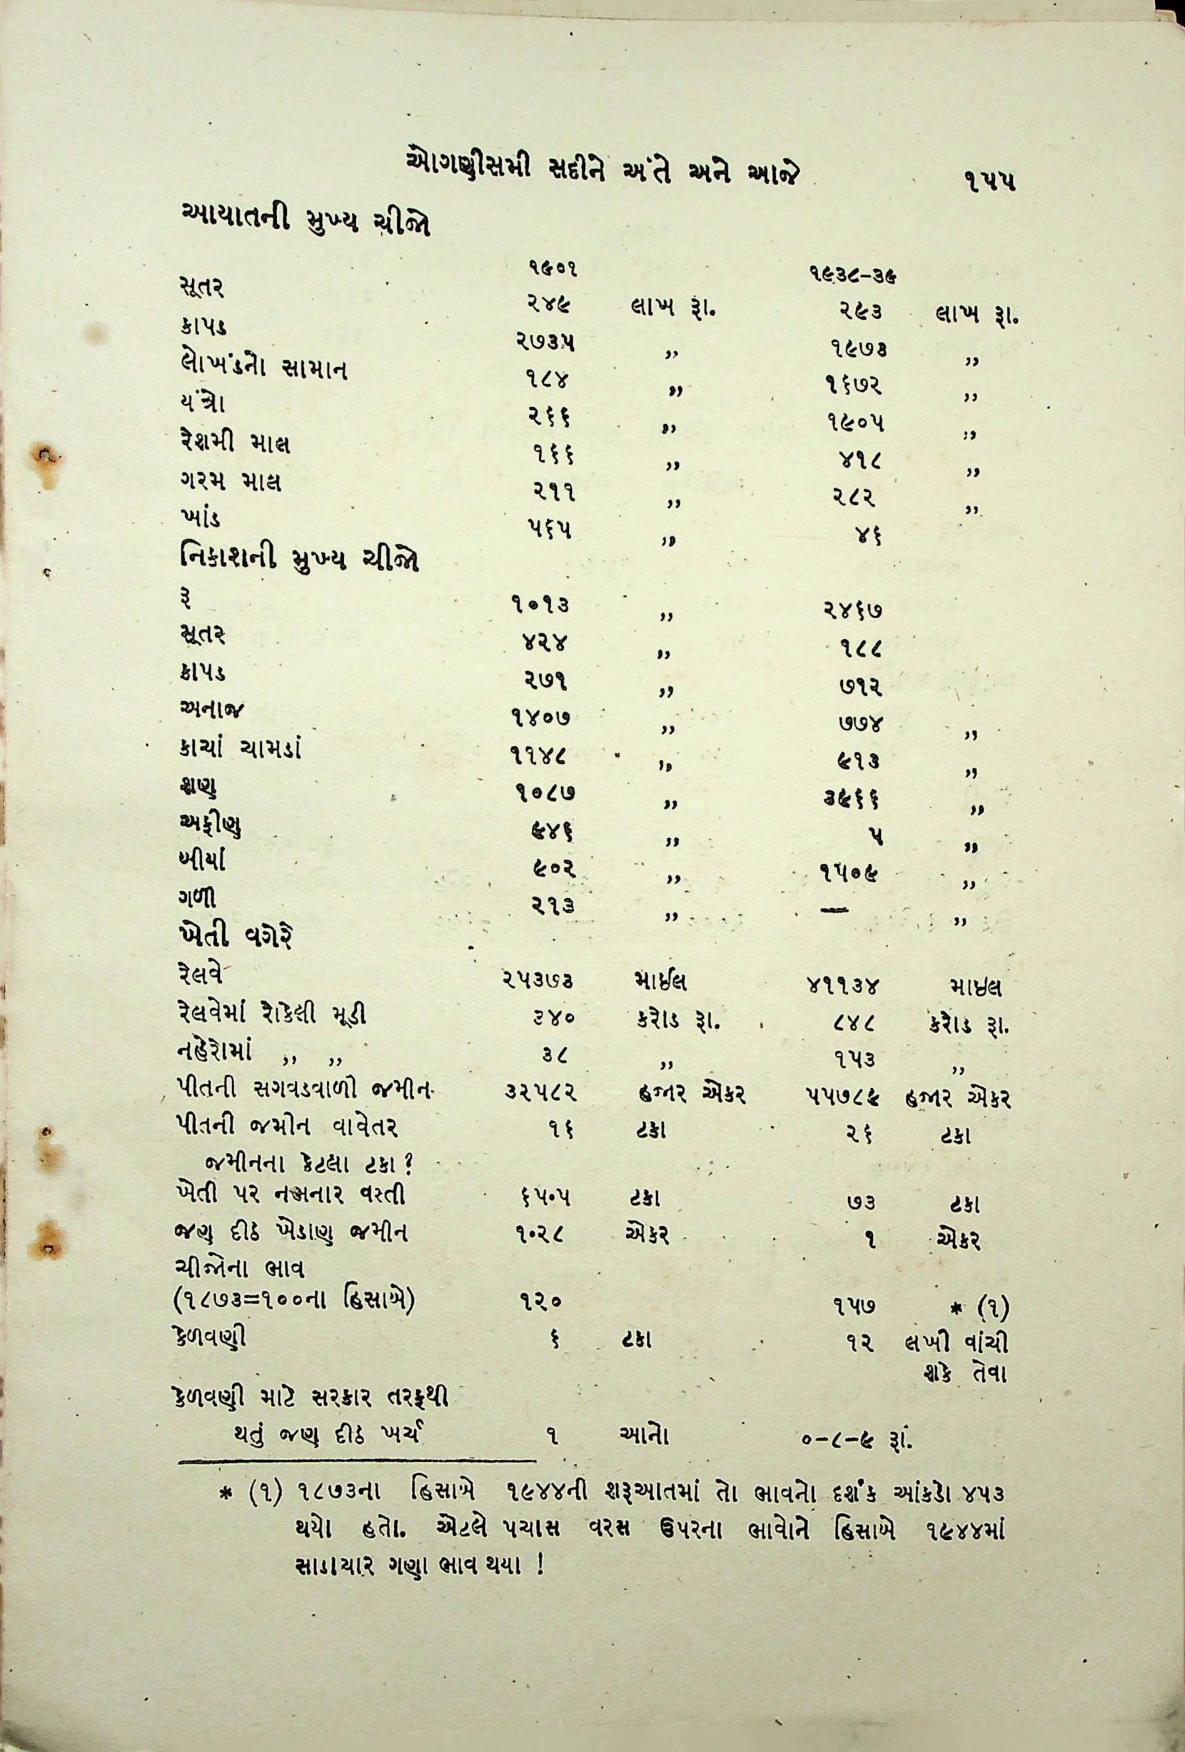 ઓગણીસમી સદીને અંતે અને આજે ૧૫૫
આયાતની મુખ્ય ચીજો
૧૯૦૧ ૧૯૩૮-૩૯
સૂતર ૨૪૯ લાખ રૂા. ૨૯૩ લાખ રૂા.
કાપડ ૨૭૩૫ ,, ૧૯૭૩ ,,
લોખંડનો સામાન ૧૮૪ ,, ૧૬૭૨ ,,
યંત્રો ૨૬૬ ,, ૧૯૦૫ ,,
રેશમી માલ ૧૬૬ ,, ૪૧૮ ,,
ગરમ માલ ૨૧૧ ,, ૨૮૨ ,,
ખાંડ ૫૬૫ ,, ૪૬
નિકાશની મુખ્ય ચીજો
રૂ ૧૦૧૩ ,, ૨૪૬૭
સૂતર ૪૨૪ ,, ૧૮૮
કાપડ ૨૭૧ ,, ૭૧૨
અનાજ ૧૪૦૭ ,, ૭૭૪ ,,
કાચાં ચામડાં ૧૧૪૮ ,, ૯૧૩ ,,
શણ ૧૦૮૭ ,, ૩૯૬૬ ,,
અફીણ ૯૪૬ ,, ૫ ,,
બીયાં ૯૦૨ ,, ૧૫૦૯ ,,
ગળી ૨૧૩ ,, — ,,
ખેતી વગેરે
રેલવે ૨૫૩૭૩ માઈલ ૪૧૧૩૪ માઈલ
રેલવેમાં રોકેલી મૂડી ૩૪૦ કરોડ રૂા. ૮૪૮ કરોડ રૂા.
નહેરોમાં ,, ,, ૩૮ ,, ૧૫૩ ,,
પીતની સગવડવાળી જમીન ૩૨૫૮૨ હજાર એકર ૫૫૭૮૯ હજાર એકર
પીતની જમીન વાવેતર ૧૬ ટકા ૨૬ ટકા
જમીનના કેટલા ટકા?
ખેતી પર નભનાર વસ્તી ૬૫.૫ ટકા ૭૩ ટકા
જણ દીઠ ખેડાણ જમીન ૧.૨૮ એકર ૧ એકર
ચીજોના ભાવ
(૧૮૭૩=૧૦૦ના હિસાબે) ૧૨૦ ૧૫૭ * (૧)
કેળવણી ૬ ટકા ૧૨ લખી વાંચી
શકે તેવા
કેળવણી માટે સરકાર તરફથી
થતું જણ દીઠ ખર્ચ ૧ આનો ૦-૮-૯ રૂા.
* (૧) ૧૮૭૩ના હિસાબે ૧૯૪૪ની શરૂઆતમાં તો ભાવનો દર્શક આંકડો ૪૫૩
થયો હતો. એટલે પચાસ વરસ ઉપરના ભાવોને હિસાબે ૧૯૪૪માં
સાડાચાર ગણા ભાવ થયા !